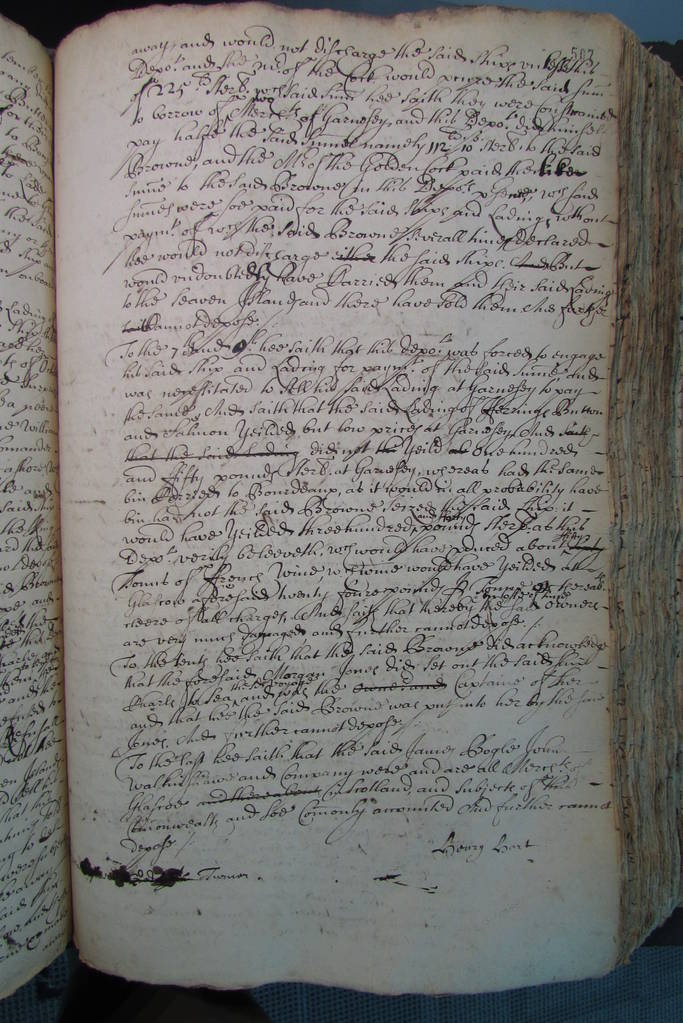 507
away, and would not discharge the said Ships unlesse this
Depot. and the Mr. of the Cock would procure the said summ
of 225 li Sterl. wch said summe hee saith they were constrained
to borrow of two Merchts of Garnesey, and this Depot. did himself
pay halfe the said summe namely 112 li 10 s Sterl. to the said
Browne, and the Mr. of the Golden Cock paid the like
summe to the said Browne in this Depots. presence, wch said
summes were soe paid for the said Ships and Ladings, without
paymt. of wch the said Browne severall times declared
hee would not discharge the said Ships. And but
would undoubtedly have Carried them and their said Lading
to the seaven Islands and there have sold them And further
cannot depose /
To the 7th and hee saith that this depot. was forced to engage
his said Ship and Lading for paymt. of the said summe and
was necessitated to sell his said Lading at Garnesey to pay
the same, And saith that the said Lading of Herring, Button
and Salmon Yeilded but low prices at Garnesey, And saith
that the said Lading did not Yeild one hundred
and fifty pounds Sterl. at Garnesey, whereas had the same
bin Carried to Bourdeaux, as it would in all probability have
bin had not the said Browne seized the said Ship, it
would have Yeilded three hundred and fifty pounds Sterl. as this
Depot. verily beleeveth, wch would have produced about fifty
Tonns of French Wine, wch wine would have Yeilded at
Glascow aforesaid twenty foure pounds Tonne thereab.
cleere of all charges, And saith that thereby the said owners
are very much Damaged and further cannot depose /
To the tenth hee saith that the said Browne did acknowledge
that the foresaid Morgan Jones did set out the said
Pearle to Sea, and was the owner and Captaine of her
and that hee the said Browne was put into her by the said
Jones, And further cannot depose /
To the last hee saith that the said James Bogle John
Walkinshawe and Company were and are all Merchts of
Glascoe and there about in Scotland, and subjects of this
Comonwealth, and soe Comonly accounted And further cannot
depose /
Henry Hart
Turner